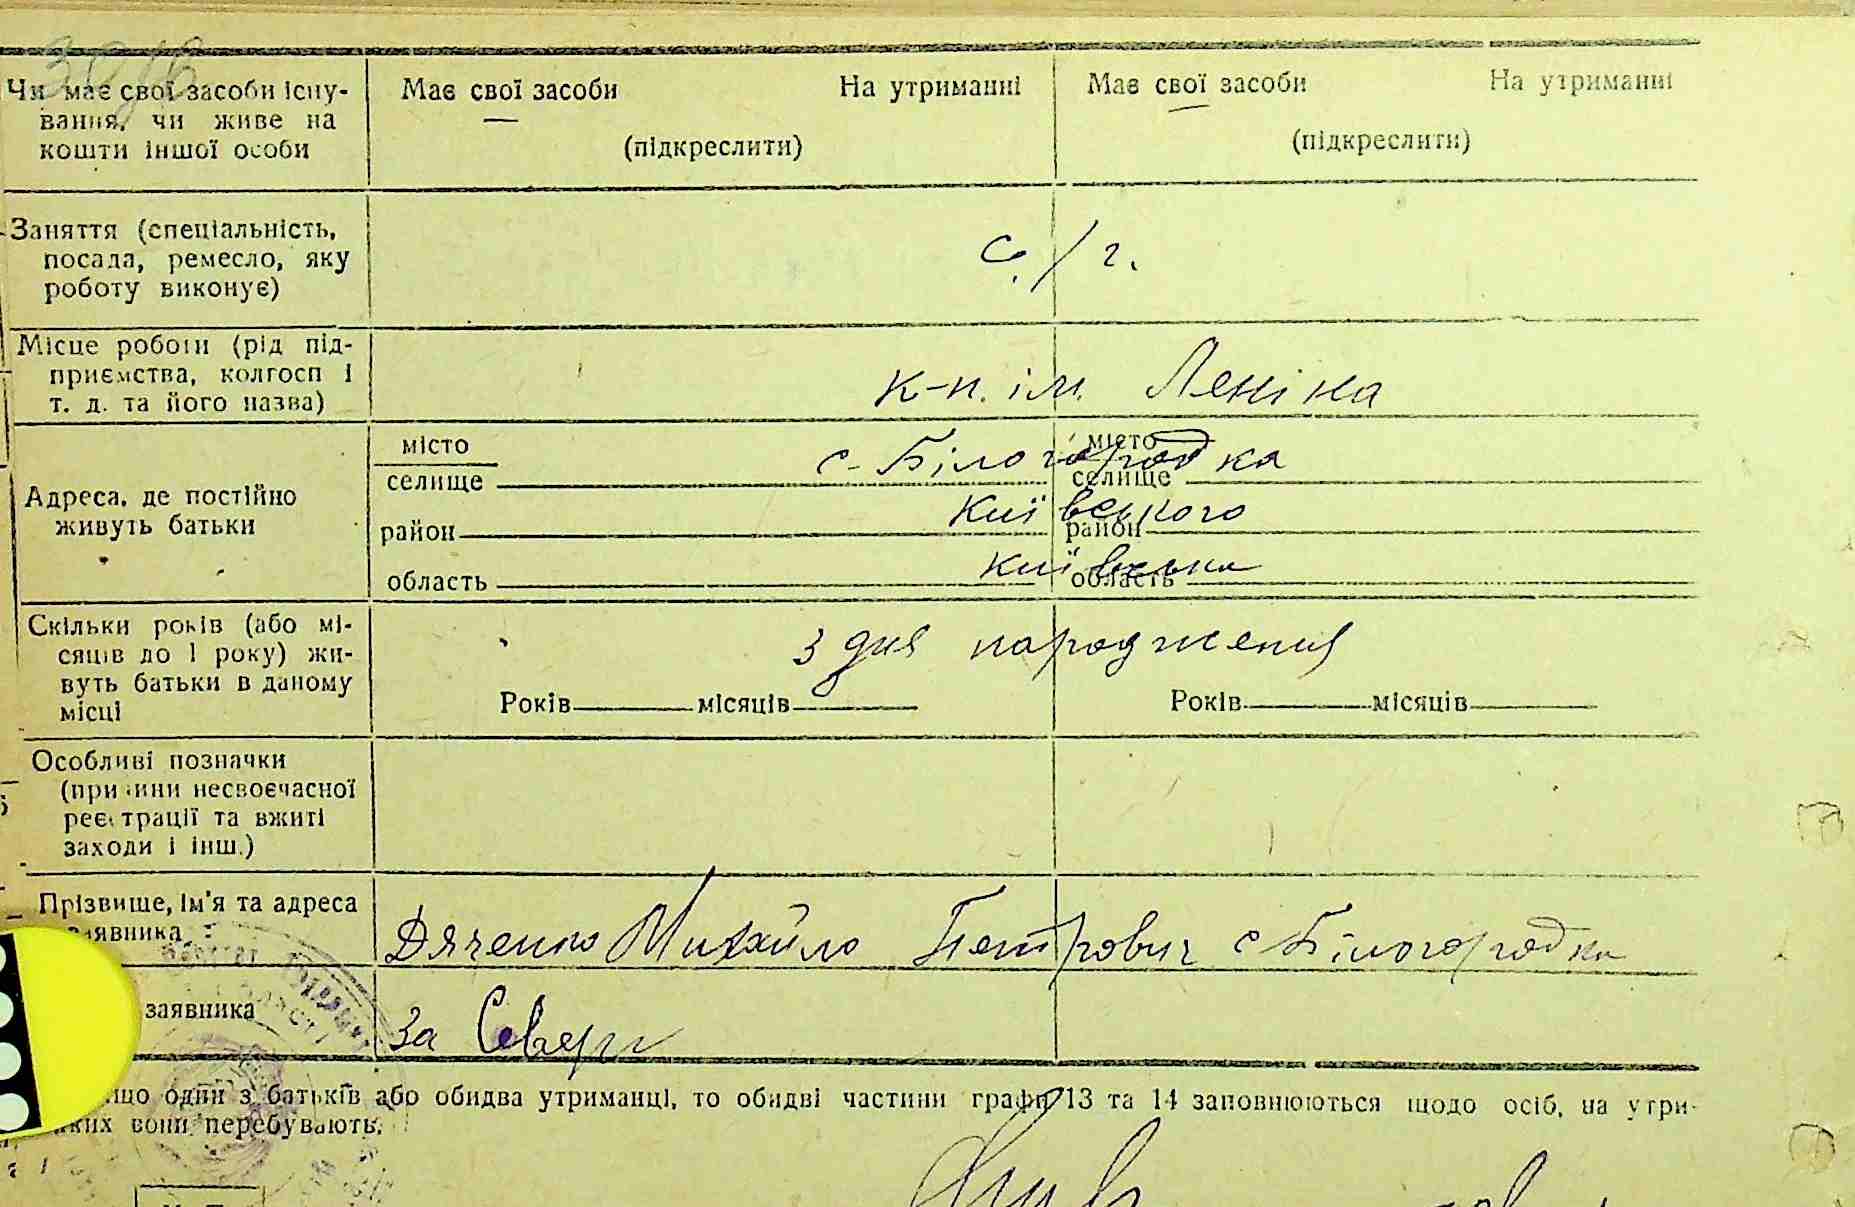 Чи має свої засоби існу-
вання, чи живе на
кошти іншої особи
Має свої засоби На утриманні
(підкреслити)
Має свої засоби На утриманні
(підкреслити)
Заняття (спеціальність,
посада, ремесло, яку
роботу виконує)
с./г.
Місце роботи (рід під-
приємства, колгосп і
т. д. та його назва)
к-п. ім. Леніна
Адреса, де постійно
живуть батьки
місто
селище
район
область
місто
селище
район
область
с-Білогородка
Київського
Київська
Скільки років (або мі-
сяців до 1 року) жи-
вуть батьки в даному
місці
з дня народження
Років місяців
Років місяців
Особливі позначки
(причини несвоєчасної
реєстрації та вжиті
заходи і інш.)
Прізвище, ім'я та адреса
заявника
Дяченко Михайло Петрович с Білогородка
заявника
За
один з батьків або обидва утриманці, то обидві частини графи 13 та 14 заповнюються щодо осіб, на утри-
яких вони перебувають.